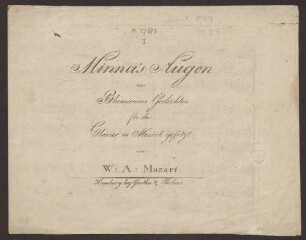 Minna's Augen
aus
Blumauers Gedichten
für das
Clavier in Musick gesetzt
von
W: A: Mozart.
Hamburg bey Günther &